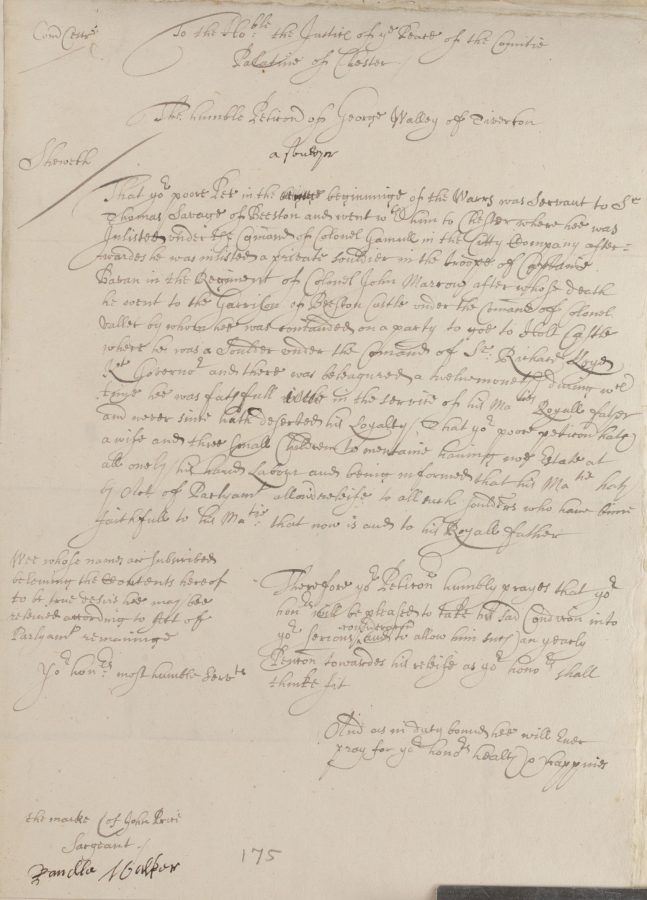 Com Cestr
To the Hoble the Justices of ye Peace of the Comitie
Palatine of Chester
The humble Peticon of George Walley of Tiverton
a souldyer
Sheweth
That yor poore Petr in the beginninge of the Warrs was Servant to Sr
Thomas Savage of Beeston and went wth him to Chester where hee was
Inlisted under the Comand of Colonel Gamull in the Citty Company after=
wardes he was inlisted a private souldier in the troope of Captaine
in the Regiment of Colonel John Marrow after whose death
he went to the Garrison of Beeston Castle under the Comand of Colonel
Vallet by whom hee was comanded on a party to goe to Holt Castle
where he was a Souldier under the Comand of Sr Richard Lloyd
Kt Governor and there was beleagured a twelvemoneth during wch
tyme hee was faithfull in the service of his Maties Royall father
and never since hath deserted his Loyalty That yor poore peticonr hath
a wife and three small Children to mentaine having noe Estate at
all onely his hand Labour and being informed that his Matie hath
by Act of Parlyamt allowed releife to all such souldiers who have beene
faithfull to his Matie that now is and to his Royall father
Wee whose names are Subscribed
beleiving the Contents hereof
to be true desire hee may bee
releived according to Act of
Parlyamt remaininge
Yor honrs most humble Servts
Therefore yor Peticonr humbly prayes that yor
honrs will be pleased to take his sad Condicon into
yor serious consideracon and to allow him such an yearly
Pencon towardes his releife as yor honors shall
thinke fit
And as in duty bound hee will Ever
pray for yor honrs health & happines
the marke of John Price
Sargeant
Randle Walker
175